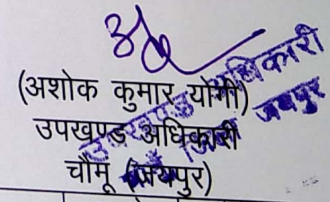 (अशोक कुमार योगी)
उपखण्ड अधिकारी
चौमू (जयपुर)
उपखण्ड अधिकारी
जयपुर